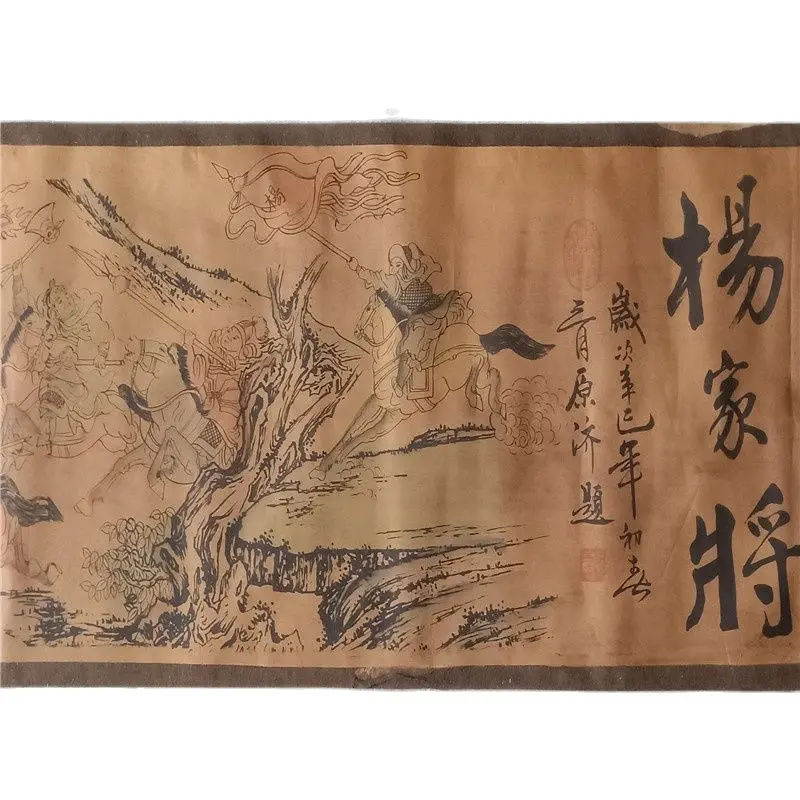 楊家將
歲次辛巳年初春
三月原济題
楊